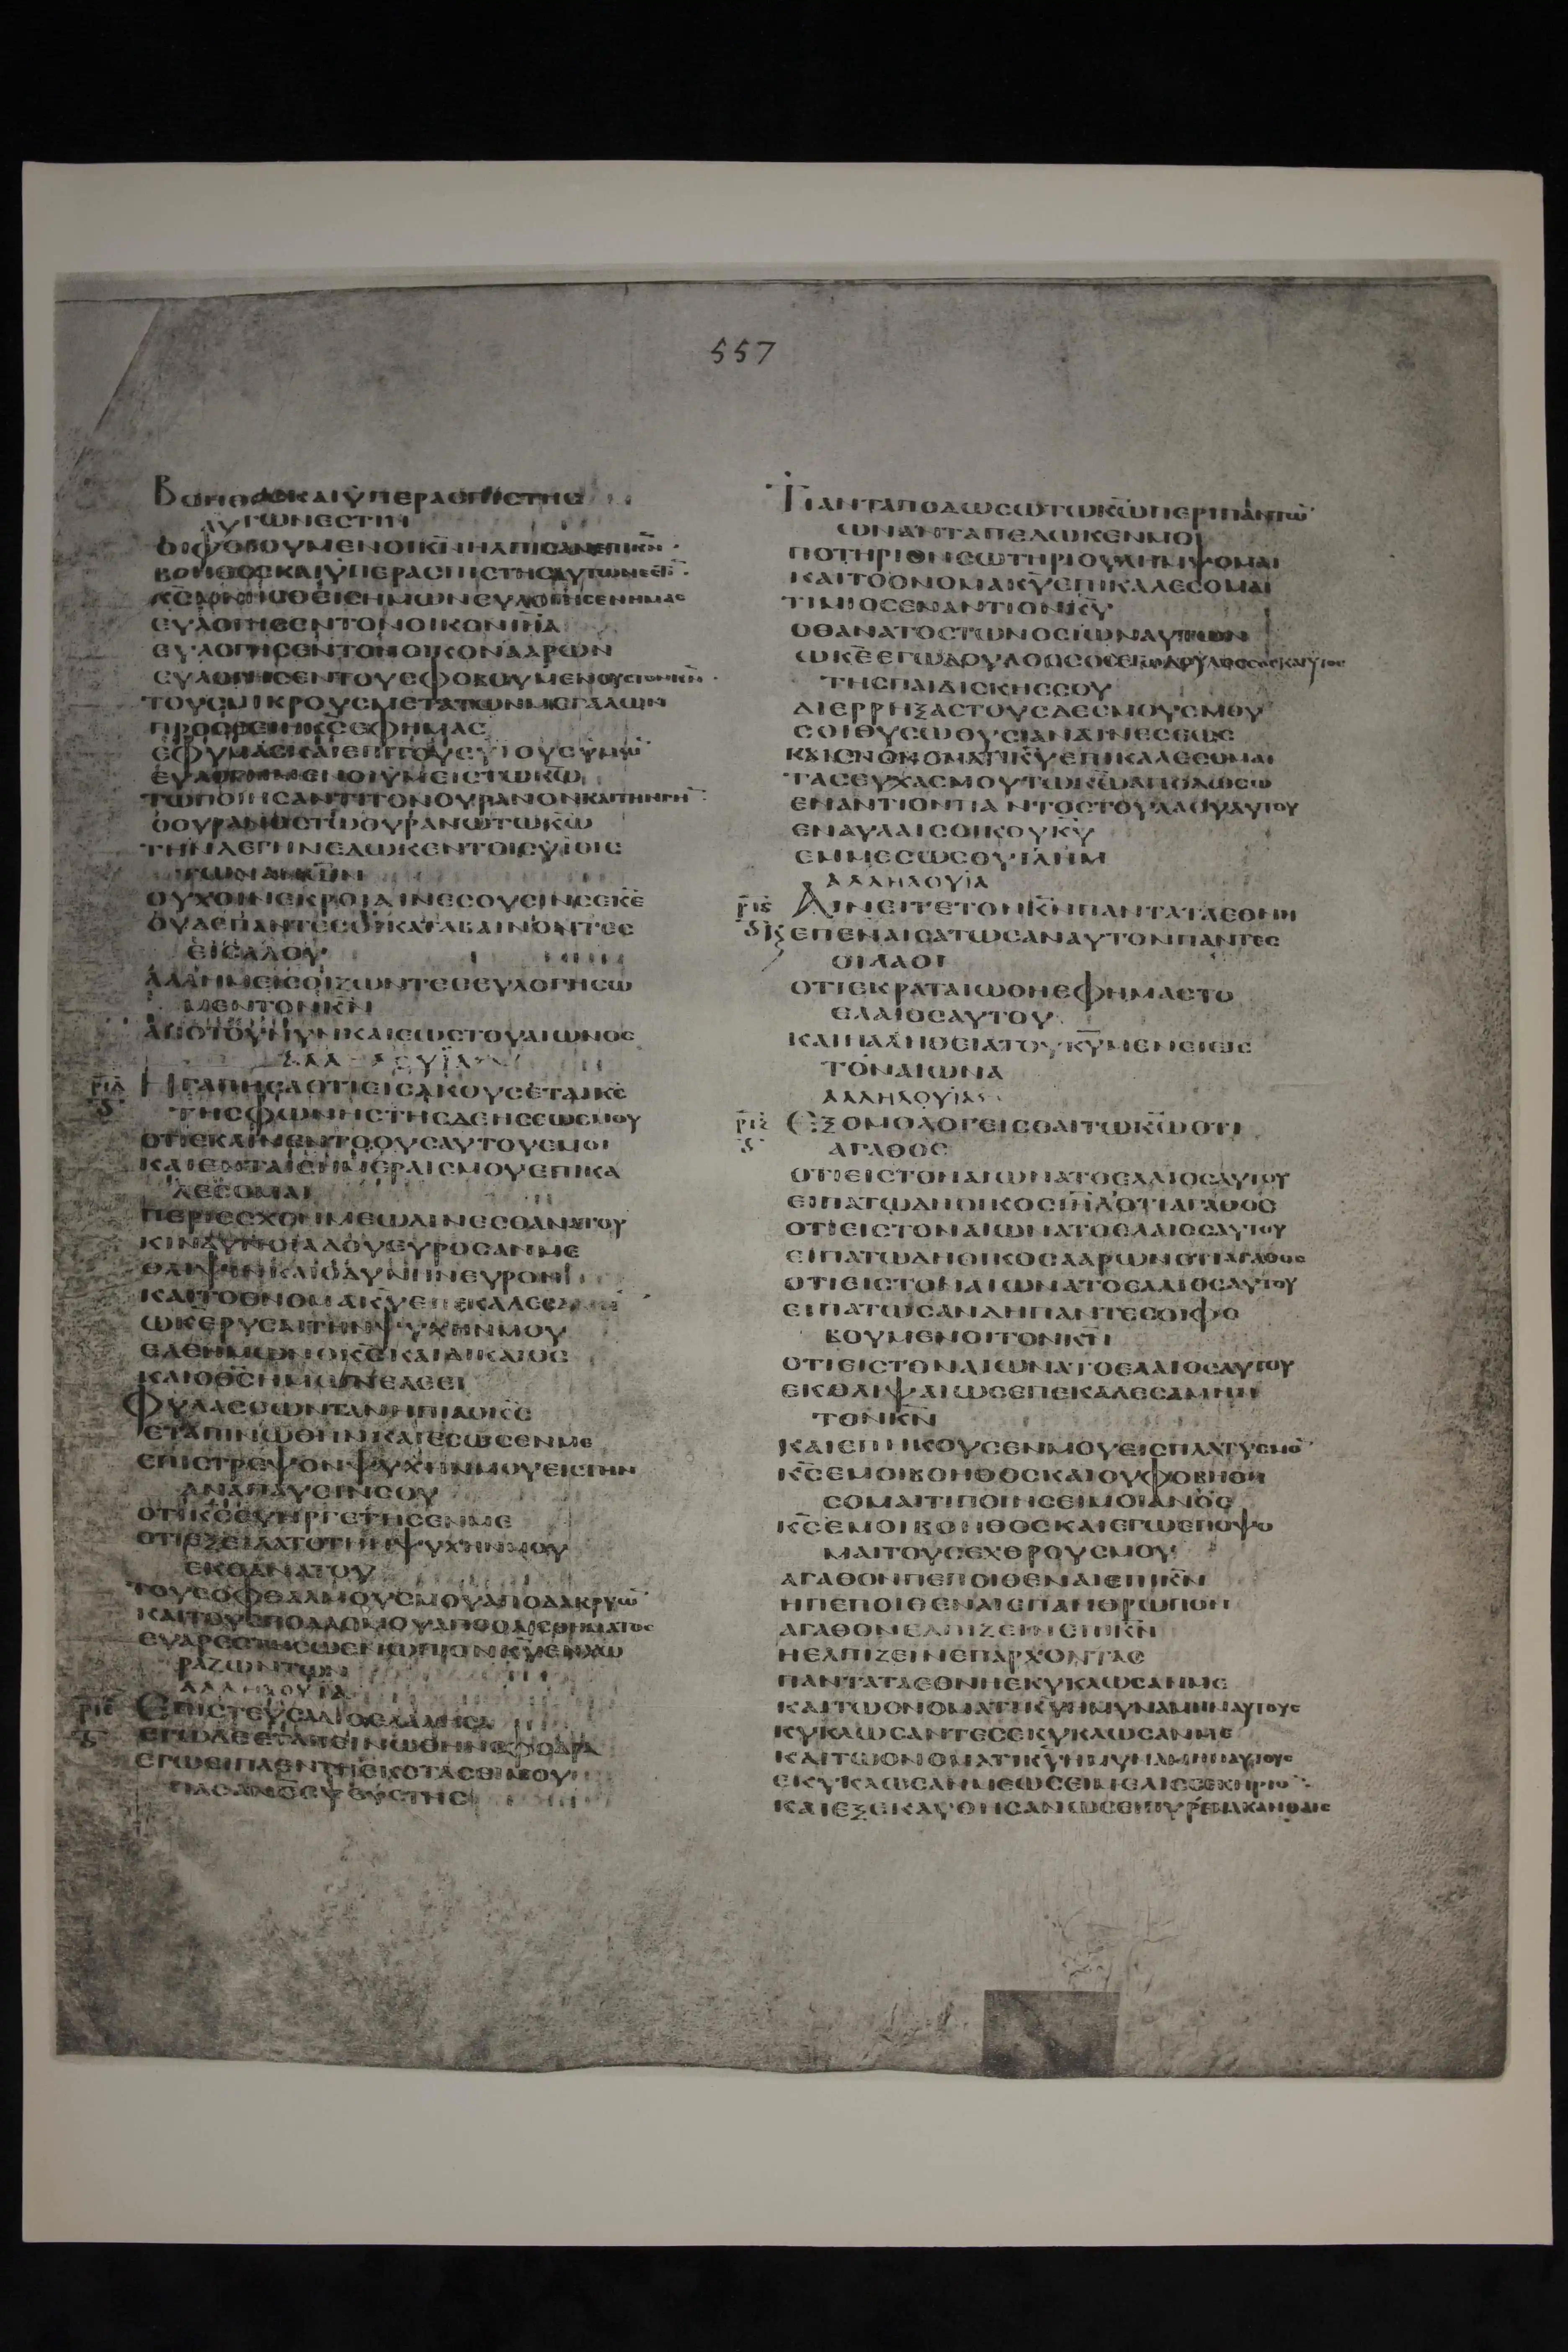 557
ΒΟΗΘΟΣ ΚΑΙ ΥΠΕΡΑΣΠΙΣΤΗΣ
ΑΥΤΩΝ ΕΣΤΙΝ
ΟΙ ΦΟΒΟΥΜΕΝΟΙ Κ̅Ν̅ ΗΛΠΙΣΑΝ ΕΠΙ Κ̅Ν̅
ΒΟΗΘΟΣ ΚΑΙ ΥΠΕΡΑΣΠΙΣΤΗΣ ΑΥΤΩΝ ΕΣΤΙ
Κ̅Σ̅ ΜΝΗΣΘΕΙΣ ΗΜΩΝ ΕΥΛΟΓΗΣΕΝ ΗΜΑΣ
ΕΥΛΟΓΗΣΕΝ ΤΟΝ ΟΙΚΟΝ Ι̅Η̅Λ̅
ΕΥΛΟΓΗΣΕΝ ΤΟΝ ΟΙΚΟΝ ΑΑΡΩΝ
ΕΥΛΟΓΗΣΕΝ ΤΟΥΣ ΦΟΒΟΥΜΕΝΟΥΣ ΤΟΝ Κ̅Ν̅
ΤΟΥΣ ΜΙΚΡΟΥΣ ΜΕΤΑ ΤΩΝ ΜΕΓΑΛΩΝ
ΠΡΟΣΘΕΙΗ Κ̅Σ̅ ΕΦ ΗΜΑΣ
ΕΦ ΥΜΑΣ ΚΑΙ ΕΠΙ ΤΟΥΣ ΥΙΟΥΣ ΥΜΩ̅
ΕΥΛΟΓΗΜΕΝΟΙ ΥΜΕΙΣ ΤΩ Κ̅Ω̅
ΤΩ ΠΟΙΗΣΑΝΤΙ ΤΟΝ ΟΥΡΑΝΟΝ ΚΑΙ ΤΗΝ ΓΗ̅
Ο ΟΥΡΑΝΟΣ ΤΟΥ ΟΥΡΑΝΟΥ ΤΩ Κ̅Ω̅
ΤΗΝ ΔΕ ΓΗΝ ΕΔΩΚΕΝ ΤΟΙΣ ΥΙΟΙΣ
ΤΩΝ Α̅Ν̅Ω̅Ν̅
ΟΥΧ ΟΙ ΝΕΚΡΟΙ ΑΙΝΕΣΟΥΣΙΝ ΣΕ Κ̅Ε̅
ΟΥΔΕ ΠΑΝΤΕΣ ΟΙ ΚΑΤΑΒΑΙΝΟΝΤΕΣ
ΕΙΣ ΑΔΟΥ
ΑΛΛ ΗΜΕΙΣ ΟΙ ΖΩΝΤΕΣ ΕΥΛΟΓΗΣΩ
ΜΕΝ ΤΟΝ Κ̅Ν̅
ΑΠΟ ΤΟΥ ΝΥΝ ΚΑΙ ΕΩΣ ΤΟΥ ΑΙΩΝΟΣ
ΑΛΛΗΛΟΥΙΑ
ΡΙΔ ΗΓΑΠΗΣΑ ΟΤΙ ΕΙΣΑΚΟΥΣΕΤΑΙ Κ̅Σ̅
ΤΗΣ ΦΩΝΗΣ ΤΗΣ ΔΕΗΣΕΩΣ ΜΟΥ
ΟΤΙ ΕΚΛΙΝΕΝ ΤΟ ΟΥΣ ΑΥΤΟΥ ΕΜΟΙ
ΚΑΙ ΕΝ ΤΑΙΣ ΗΜΕΡΑΙΣ ΜΟΥ ΕΠΙΚΑ
ΛΕΣΟΜΑΙ
ΠΕΡΙΕΣΧΟΝ ΜΕ ΩΔΙΝΕΣ ΘΑΝΑΤΟΥ
ΚΙΝΔΥΝΟΙ ΑΔΟΥ ΕΥΡΟΣΑΝ ΜΕ
ΘΛΙΨΙΝ ΚΑΙ ΟΔΥΝΗΝ ΕΥΡΟΝ
ΚΑΙ ΤΟ ΟΝΟΜΑ Κ̅Υ̅ ΕΠΕΚΑΛΕΣΑΜΗΝ
Ω Κ̅Ε̅ ΡΥΣΑΙ ΤΗΝ ΨΥΧΗΝ ΜΟΥ
ΕΛΕΗΜΩΝ Ο Κ̅Σ̅ ΚΑΙ ΔΙΚΑΙΟΣ
ΚΑΙ Ο Θ̅Σ̅ ΗΜΩΝ ΕΛΕΕΙ
ΦΥΛΑΣΣΩΝ ΤΑ ΝΗΠΙΑ Ο Κ̅Σ̅
ΕΤΑΠΙΝΩΘΗΝ ΚΑΙ ΕΣΩΣΕΝ ΜΕ
ΕΠΙΣΤΡΕΨΟΝ ΨΥΧΗΝ ΜΟΥ ΕΙΣ ΤΗΝ
ΑΝΑΠΑΥΣΙΝ ΣΟΥ
ΟΤΙ Κ̅Σ̅ ΕΥΗΡΓΕΤΗΣΕΝ ΜΕ
ΟΤΙ ΕΞΕΙΛΑΤΟ ΤΗΝ ΨΥΧΗΝ ΜΟΥ
ΕΚ ΘΑΝΑΤΟΥ
ΤΟΥΣ ΟΦΘΑΛΜΟΥΣ ΜΟΥ ΑΠΟ ΔΑΚΡΥΩ̅
ΚΑΙ ΤΟΥΣ ΠΟΔΑΣ ΜΟΥ ΑΠΟ ΟΛΙΣΘΗΜΑΤΟΣ
ΕΥΑΡΕΣΤΗΣΩ ΕΝΩΠΙΟΝ Κ̅Υ̅ ΕΝ ΧΩ
ΡΑ ΖΩΝΤΩΝ
ΑΛΛΗΛΟΥΙΑ
ΡΙΕ ΕΠΙΣΤΕΥΣΑ ΔΙΟ ΕΛΑΛΗΣΑ
ΕΓΩ ΔΕ ΕΤΑΠΕΙΝΩΘΗΝ ΣΦΟΔΡΑ
ΕΓΩ ΕΙΠΑ ΕΝ ΤΗ ΕΚΣΤΑΣΕΙ ΜΟΥ
ΠΑΣ Α̅Ν̅Ο̅Σ̅ ΨΕΥΣΤΗΣ
ΤΙ ΑΝΤΑΠΟΔΩΣΩ ΤΩ Κ̅Ω̅ ΠΕΡΙ ΠΑΝΤΩ̅
ΩΝ ΑΝΤΑΠΕΔΩΚΕΝ ΜΟΙ
ΠΟΤΗΡΙΟΝ ΣΩΤΗΡΙΟΥ ΛΗΜΨΟΜΑΙ
ΚΑΙ ΤΟ ΟΝΟΜΑ Κ̅Υ̅ ΕΠΙΚΑΛΕΣΟΜΑΙ
ΤΙΜΙΟΣ ΕΝΑΝΤΙΟΝ Κ̅Υ̅
Ο ΘΑΝΑΤΟΣ ΤΩΝ ΟΣΙΩΝ ΑΥΤΟΥ
Ω Κ̅Ε̅ ΕΓΩ ΔΟΥΛΟΣ ΣΟΣ ΕΓΩ ΔΟΥΛΟΣ ΣΟΣ ΚΑΙ ΥΙΟΣ
ΤΗΣ ΠΑΙΔΙΣΚΗΣ ΣΟΥ
ΔΙΕΡΡΗΞΑΣ ΤΟΥΣ ΔΕΣΜΟΥΣ ΜΟΥ
ΣΟΙ ΘΥΣΩ ΘΥΣΙΑΝ ΑΙΝΕΣΕΩΣ
ΚΑΙ ΕΝ ΟΝΟΜΑΤΙ Κ̅Υ̅ ΕΠΙΚΑΛΕΣΟΜΑΙ
ΤΑΣ ΕΥΧΑΣ ΜΟΥ ΤΩ Κ̅Ω̅ ΑΠΟΔΩΣΩ
ΕΝΑΝΤΙΟΝ ΠΑΝΤΟΣ ΤΟΥ ΛΑΟΥ ΑΥΤΟΥ
ΕΝ ΑΥΛΑΙΣ ΟΙΚΟΥ Κ̅Υ̅
ΕΜ ΜΕΣΩ ΣΟΥ Ι̅Λ̅Η̅Μ̅
ΑΛΛΗΛΟΥΙΑ
ΡΙϚ ΑΙΝΕΙΤΕ ΤΟΝ Κ̅Ν̅ ΠΑΝΤΑ ΤΑ ΕΘΝΗ
Κ ΕΠΕΝΑΙΣΑΤΩΣΑΝ ΑΥΤΟΝ ΠΑΝΤΕΣ
ΟΙ ΛΑΟΙ
ΟΤΙ ΕΚΡΑΤΑΙΩΘΗ ΕΦ ΗΜΑΣ ΤΟ
ΕΛΑΙΟΣ ΑΥΤΟΥ
ΚΑΙ Η ΑΛΗΘΕΙΑ ΤΟΥ Κ̅Υ̅ ΜΕΝΕΙ ΕΙΣ
ΤΟΝ ΑΙΩΝΑ
ΑΛΛΗΛΟΥΙΑ
ΡΙΖ ΕΞΟΜΟΛΟΓΕΙΣΘΑΙ ΤΩ Κ̅Ω̅ ΟΤΙ
ΑΓΑΘΟΣ
ΟΤΙ ΕΙΣ ΤΟΝ ΑΙΩΝΑ ΤΟ ΕΛΑΙΟΣ ΑΥΤΟΥ
ΕΙΠΑΤΩ ΔΗ ΟΙΚΟΣ Ι̅Η̅Λ̅ ΟΤΙ ΑΓΑΘΟΣ
ΟΤΙ ΕΙΣ ΤΟΝ ΑΙΩΝΑ ΤΟ ΕΛΑΙΟΣ ΑΥΤΟΥ
ΕΙΠΑΤΩ ΔΗ ΟΙΚΟΣ ΑΑΡΩΝ ΟΤΙ ΑΓΑΘΟΣ
ΟΤΙ ΕΙΣ ΤΟΝ ΑΙΩΝΑ ΤΟ ΕΛΑΙΟΣ ΑΥΤΟΥ
ΕΙΠΑΤΩΣΑΝ ΔΗ ΠΑΝΤΕΣ ΟΙ ΦΟ
ΒΟΥΜΕΝΟΙ ΤΟΝ Κ̅Ν̅
ΟΤΙ ΕΙΣ ΤΟΝ ΑΙΩΝΑ ΤΟ ΕΛΑΙΟΣ ΑΥΤΟΥ
ΕΚ ΘΛΙΨΑΙΩΣ ΕΠΕΚΑΛΕΣΑΜΗΝ
ΤΟΝ Κ̅Ν̅
ΚΑΙ ΕΠΗΚΟΥΣΕΝ ΜΟΥ ΕΙΣ ΠΛΑΤΥΣΜΟ̅
Κ̅Σ̅ ΕΜΟΙ ΒΟΗΘΟΣ ΚΑΙ ΟΥ ΦΟΒΗΘΗ
ΣΟΜΑΙ ΤΙ ΠΟΙΗΣΕΙ ΜΟΙ Α̅Ν̅Ο̅Σ̅
Κ̅Σ̅ ΕΜΟΙ ΒΟΗΘΟΣ ΚΑΙ ΕΓΩ ΕΠΟΨΟ
ΜΑΙ ΤΟΥΣ ΕΧΘΡΟΥΣ ΜΟΥ
ΑΓΑΘΟΝ ΠΕΠΟΙΘΕΝΑΙ ΕΠΙ Κ̅Ν̅
Η ΠΕΠΟΙΘΕΝΑΙ ΕΠ ΑΝΘΡΩΠΟΝ
ΑΓΑΘΟΝ ΕΛΠΙΖΕΙΝ ΕΠΙ Κ̅Ν̅
Η ΕΛΠΙΖΕΙΝ ΕΠ ΑΡΧΟΝΤΑΣ
ΠΑΝΤΑ ΤΑ ΕΘΝΗ ΕΚΥΚΛΩΣΑΝ ΜΕ
ΚΑΙ ΤΩ ΟΝΟΜΑΤΙ Κ̅Υ̅ ΗΜΥΝΑΜΗΝ ΑΥΤΟΥΣ
ΚΥΚΛΩΣΑΝΤΕΣ ΕΚΥΚΛΩΣΑΝ ΜΕ
ΚΑΙ ΤΩ ΟΝΟΜΑΤΙ Κ̅Υ̅ ΗΜΥΝΑΜΗΝ ΑΥΤΟΥΣ
ΕΚΥΚΛΩΣΑΝ ΜΕ ΩΣΕΙ ΜΕΛΙΣΣΕ ΚΗΡΙΟ̅
ΚΑΙ ΕΞΕΚΑΥΘΗΣΑΝ ΩΣ ΠΥΡ ΕΝ ΑΚΑΝΘΑΙΣ